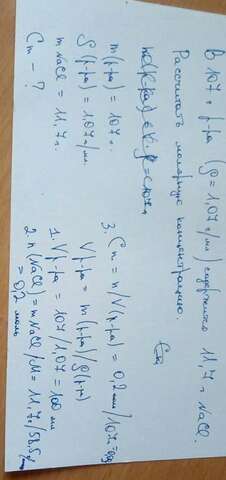 В 107 г р-ра (ρ = 1,07 г/мл) содержится 11,7 г NaCl.
Рассчитать молярную концентрацию.
Cm
m(р-ра) = 107 г.
ρ(р-ра) = 1,07 г/мл
m NaCl = 11,7 г.
Cm - ?
3. Cm = n/V(р-ра) = 0,2 моль/107 =
V р-ра = m(р-ра)/ρ(р-ра)
1. V р-ра = 107/1,07 = 100 мл
2. n(NaCl) = m NaCl/M = 11,7 г/58,5 г/моль
= 0,2 моль